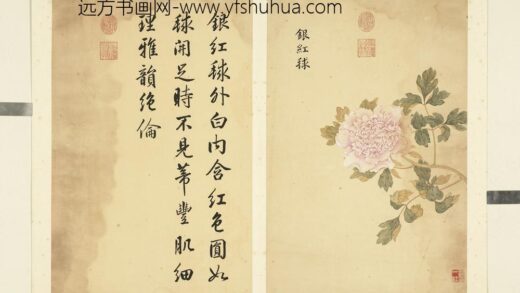 远方书画网-www.yfshuhua.com
銀紅毬
銀紅毬外白内含紅色圓如
毬開足時不見蒂豐肌細
理雅韻絶倫